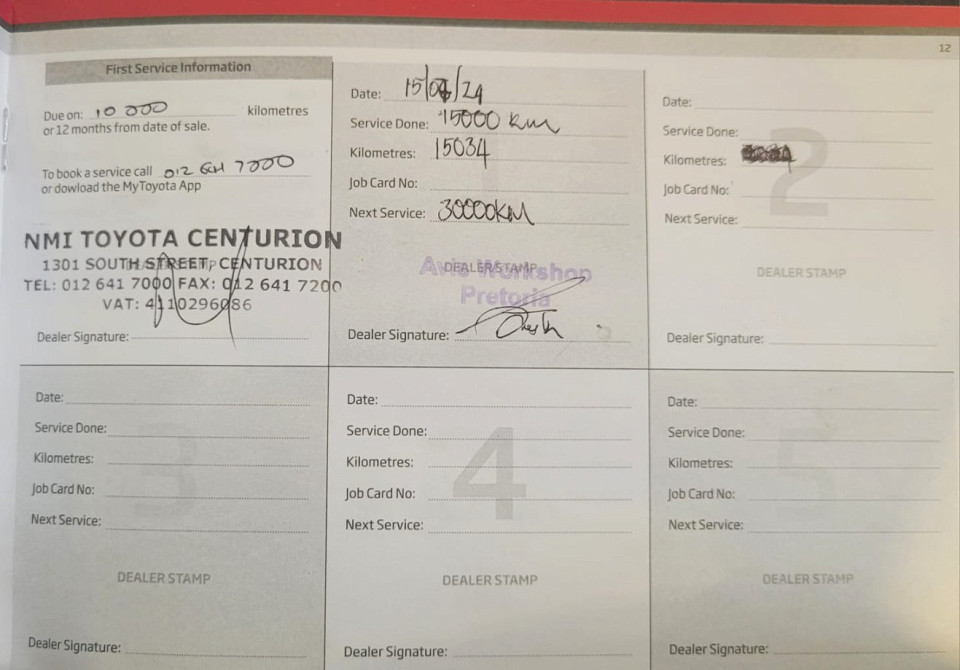 12
First Service Information
Due on: 10 000 kilometres
or 12 months from date of sale.
To book a service call 012 641 7000
or dowload the MyToyota App
NMI TOYOTA CENTURION
1301 SOUTH STREET, CENTURION
TEL: 012 641 7000 FAX: 012 641 7200
VAT: 4110296086
Dealer Signature:
Date: 15/ /24
Service Done: 15000 km
Kilometres: 15034
Job Card No:
Next Service: 30000KM
DEALER STAMP
Avis Workshop
Pretoria
Dealer Signature:
2
Date:
Service Done:
Kilometres:
Job Card No:
Next Service:
DEALER STAMP
Dealer Signature:
3
Date:
Service Done:
Kilometres:
Job Card No:
Next Service:
DEALER STAMP
Dealer Signature:
4
Date:
Service Done:
Kilometres:
Job Card No:
Next Service:
DEALER STAMP
Dealer Signature:
5
Date:
Service Done:
Kilometres:
Job Card No:
Next Service:
DEALER STAMP
Dealer Signature: